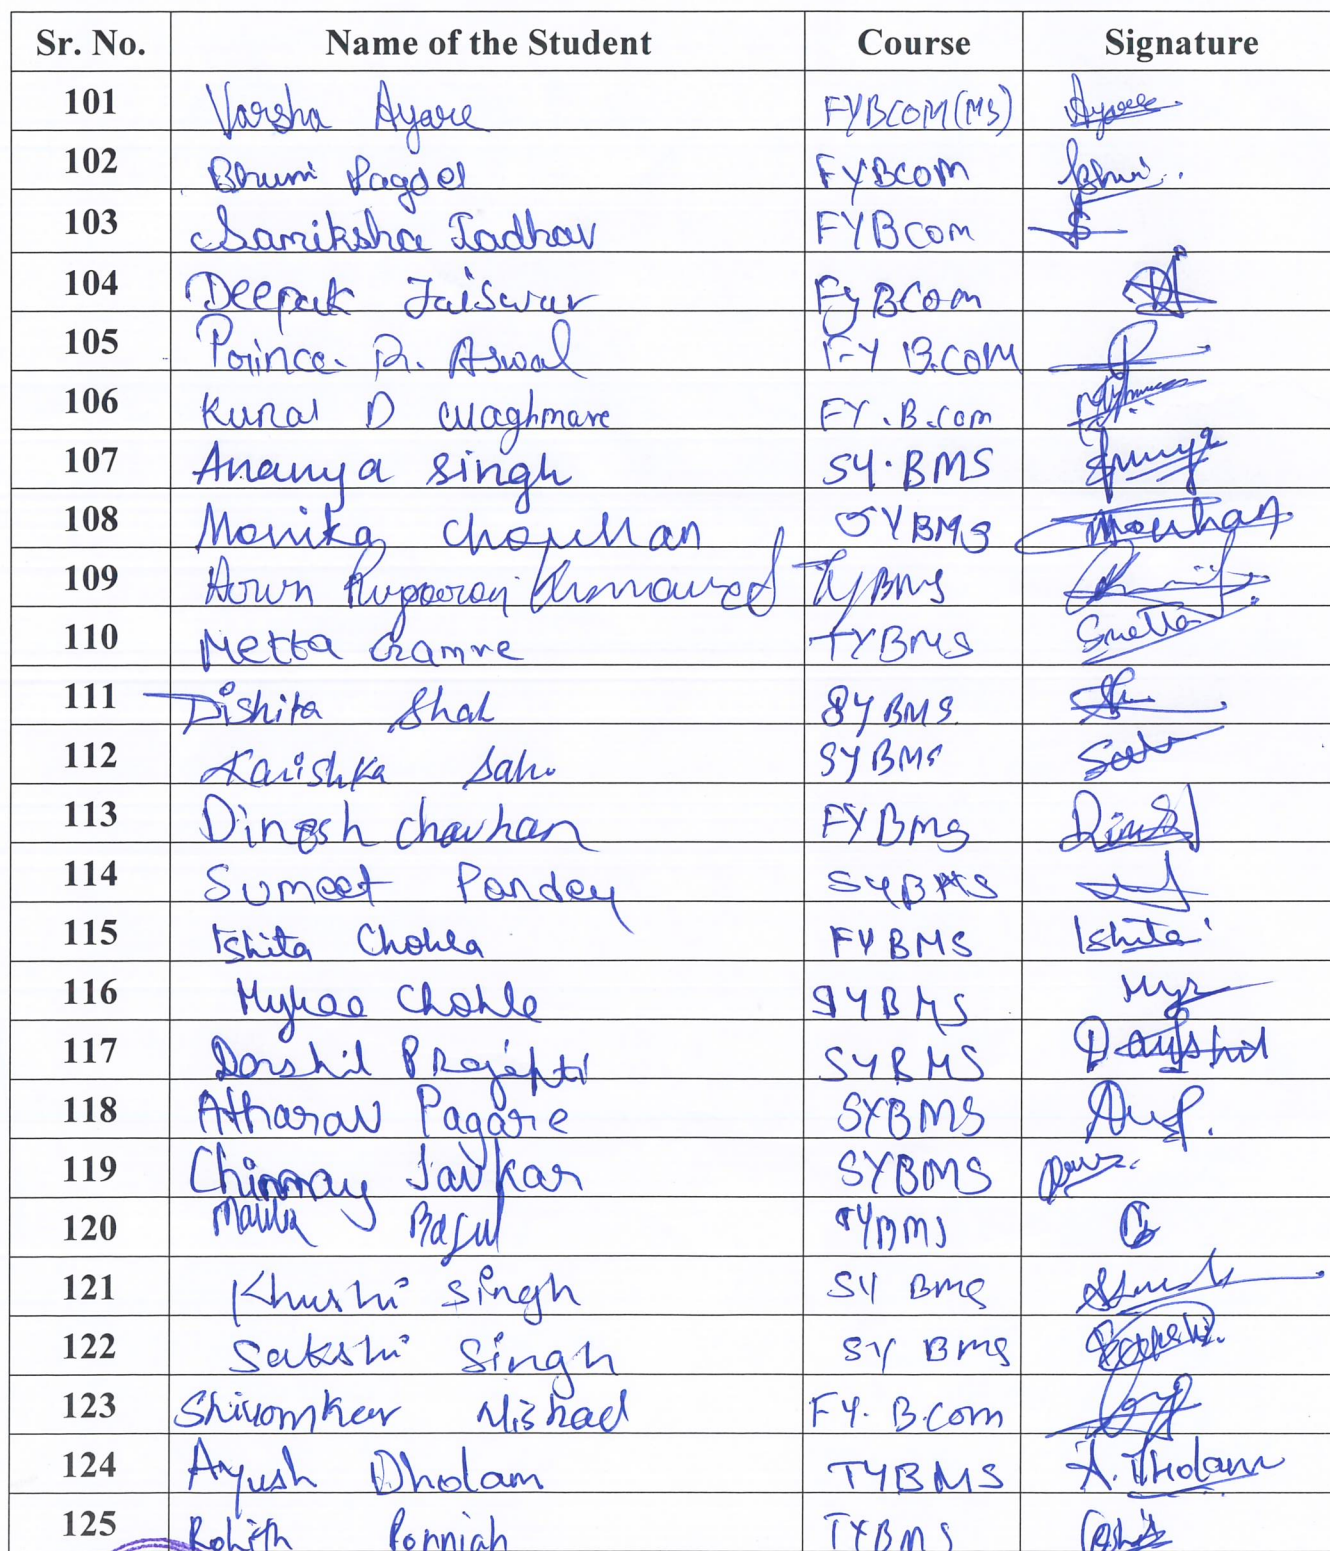 Sr. No. Name of the Student Course Signature
101 Varsha Ayare FYBCOM(MS) Ayare
102 Bhumi Pagdel FYBCOM
103 Samiksha Jadhav FYBCOM
104 Deepak Jaiswar FYBCom
105 Prince R. Aswal FY B.COM
106 Kunal D Waghmare FY.B.com
107 Ananya Singh SY.BMS
108 Monika Chouhan SYBMS
109 Arun TYBMS
110 Metta Gamre TYBMS
111 Dishita Shah SYBMS
112 Karishka Sahu SYBMS
113 Dinesh Chavhan FYBMS
114 Sumeet Pandey SYBMS
115 Ishita Chohla FYBMS Ishita
116 Chohle SYBMS
117 Darshil Prajapti SYBMS Darshil
118 Atharav Pagare SYBMS
119 Chinmay Javkar SYBMS
120 Bagul TYBMS
121 Khushi Singh SY BMS
122 Sakshi Singh SY BMS
123 Shivomkar Nishad FY. B.Com
124 Ayush Dholam TYBMS A. Dholam
125 Rohith Ponniah TYBMS